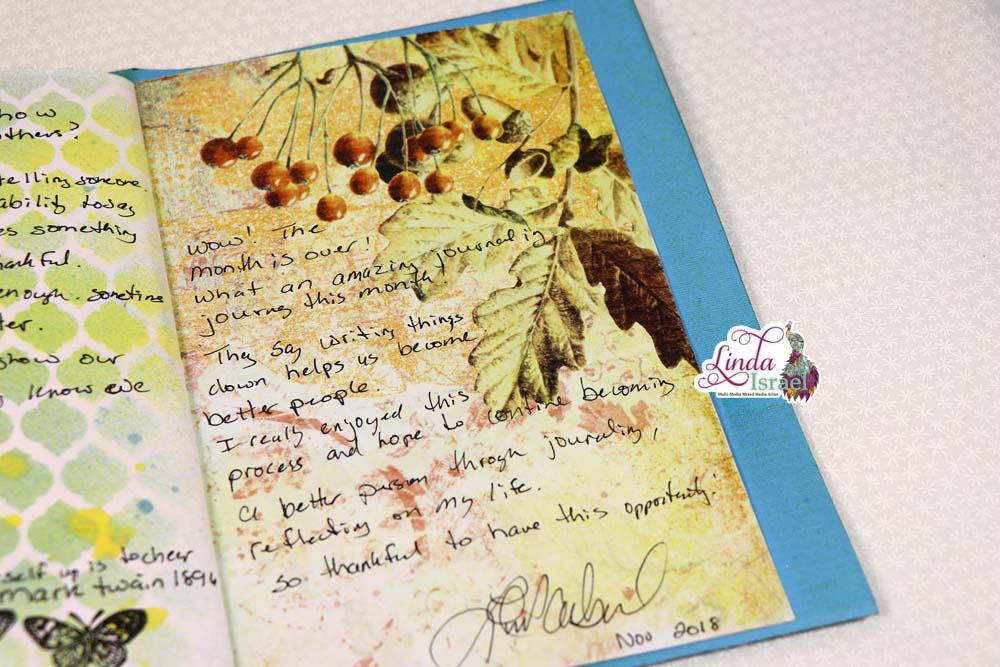 how
others?
telling someone.
ability today
es something
hankful.
enough. sometime
ter.
show our
know we
self up is to cheer
mark twain 1894
Wow! The
month is over!
What an amazing journalig
journy this month!
They say writing things
down helps us become
better people.
I really enjoyed this
process and hope to contine becoming
a better person through journaling,
reflecting on my life.
so thankful to have this opportunity!
Nov 2018
Linda
Israel
Multi-Media Mixed Media Artist